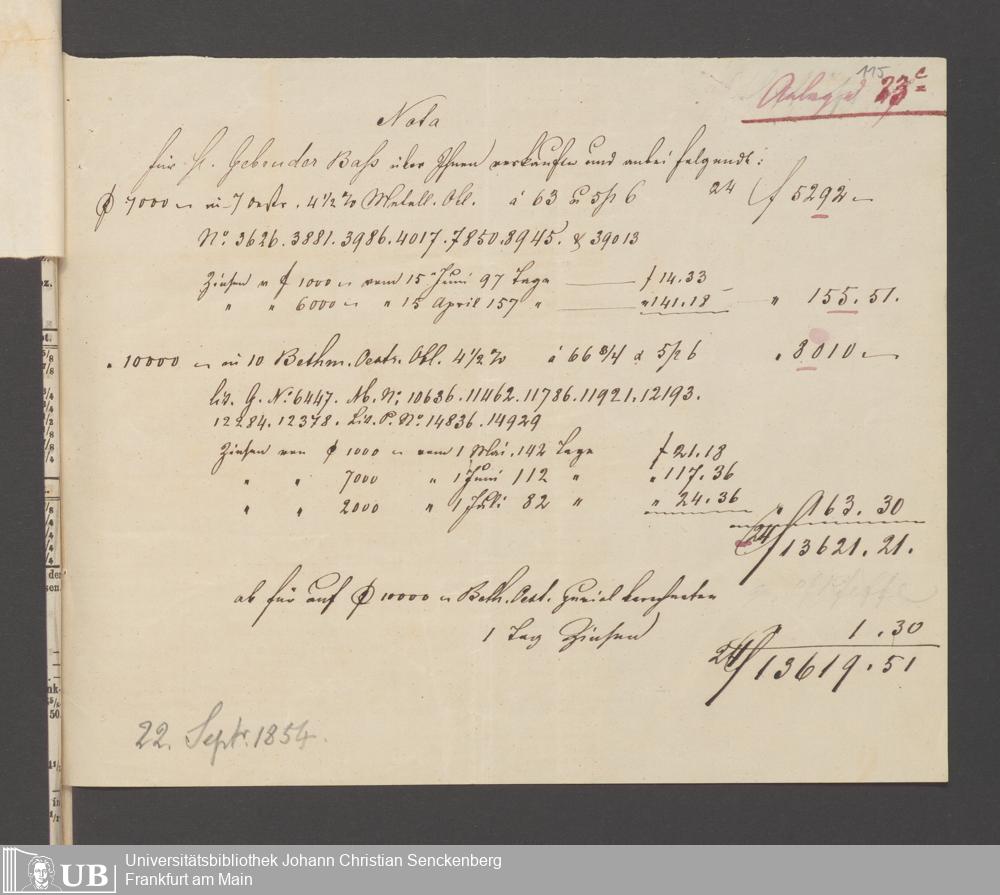 115
Anlage 23 c
Nota
für H. Gebruder Bass über Ihnen verkaufte und anbei folgende:
7000 – in 7 Oestr. 4 1/2 % Metall. Obl. á 63 u 5p 6 24 f 5292 –
No. 3626. 3881. 3986. 4017. 7850. 8945. & 39013
Zinsen v f 1000 – vom 15 Juni 97 Tage f 14.33
" " 6000 – " 15 April 157 " " 141.18 " 155.51.
" 10000 – in 10 Bethm. Oestr. Obl. 4 1/2 % á 66 3/4 5p 6 " 8010 –
Lit. G. No. 6447. M. No. 10636. 11462. 11786. 11921. 12193.
12284. 12378. Lit. P. No. 14836. 14929
Zinsen von f 1000 – vom 1 Mai. 142 Tage f 21.18
" " 7000 " 1 Juni 112 " " 117.36
" " 2000 " 1 Juli 82 " " 24.36 " 163.30
24 f 13621.21.
ab für auf f 10000 – Beth. Oest. zuviel berechneter
1 Tag Zinsen " 1.30
24 f 13619.51
22. Septr. 1854.
UB
Universitätsbibliothek Johann Christian Senckenberg
Frankfurt am Main